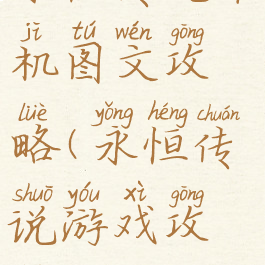 jī tú wén gōng
机图文攻
lüè yǒng héng chuán
略(永恒传
shuō yóu xì gōng
说游戏攻